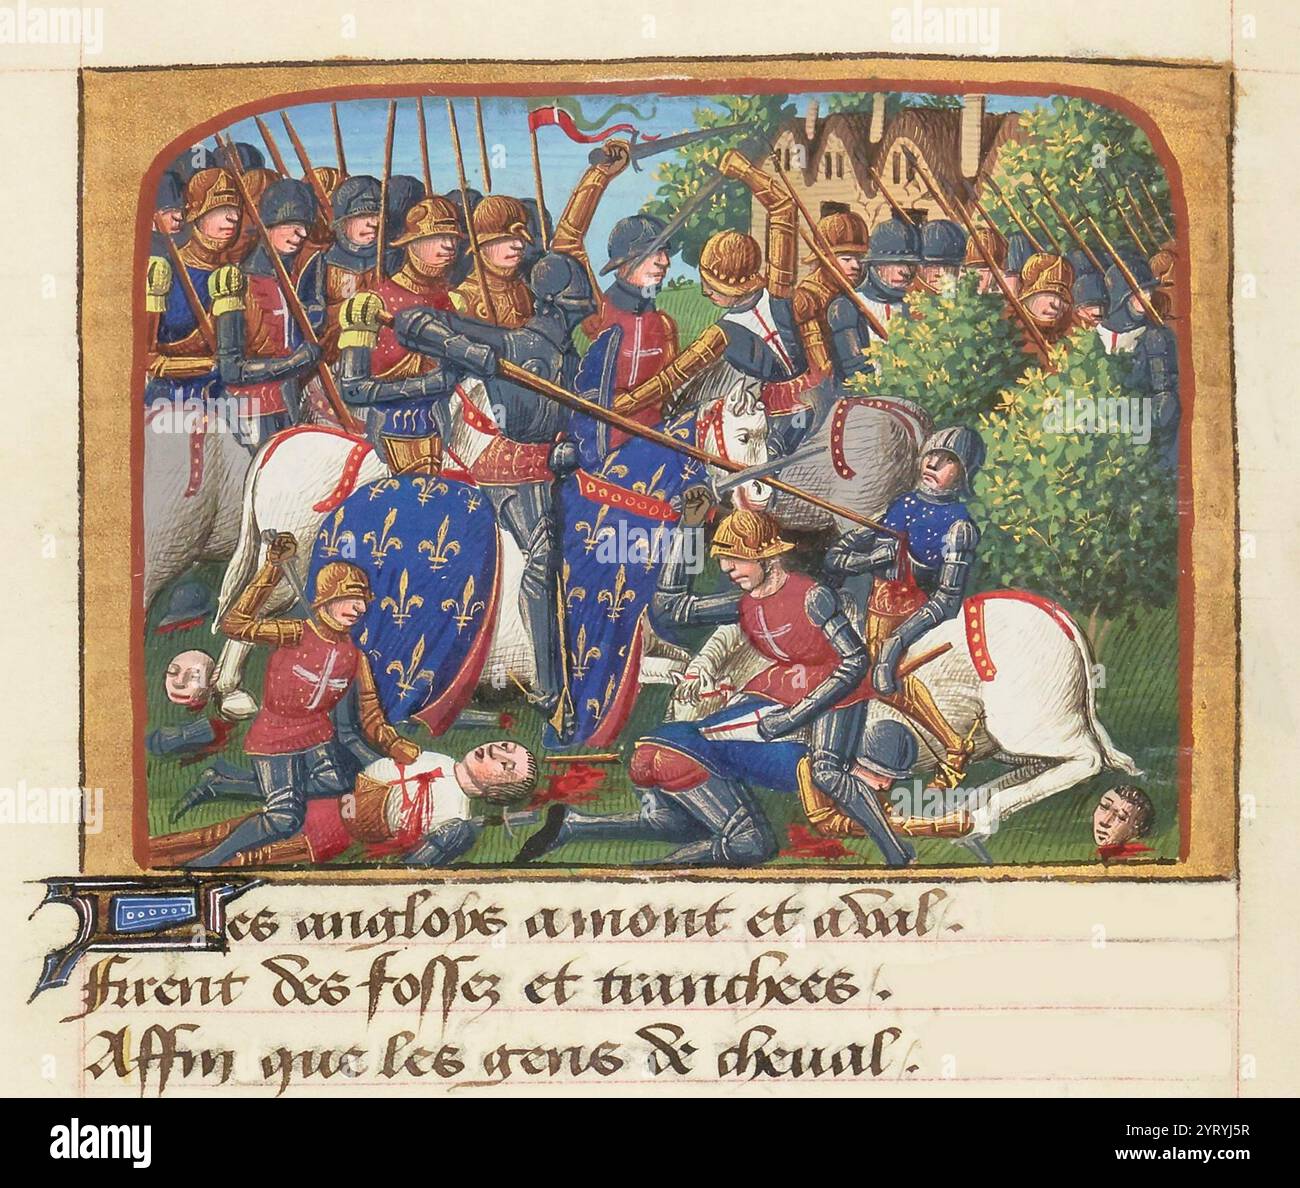 Les anglois amont et aval.
Firent des fossez et tranchees.
Affin que les gens de cheval.
alamy
Image ID: 2YRYJ5R
www.alamy.com